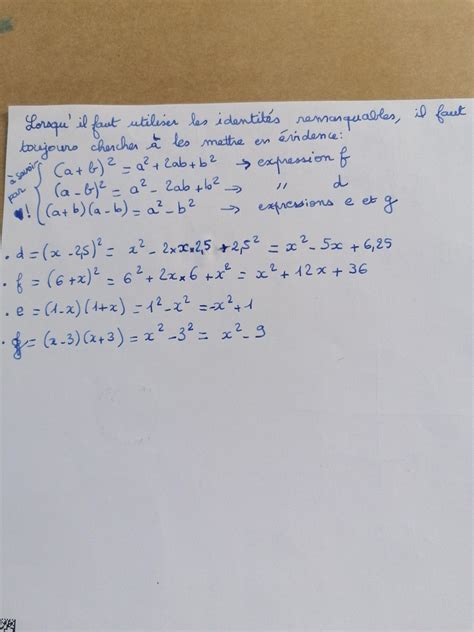 Lorsqu'il faut utiliser les identités remarquables, il faut
toujours chercher à les mettre en évidence:
à savoir par ♥!
(a+b)² = a²+2ab+b² → expression f
(a-b)² = a²-2ab+b² → " d
(a+b)(a-b) = a²-b² → expressions e et g
• d = (x-2,5)² = x² - 2×x×2,5 + 2,5² = x² - 5x + 6,25
• f = (6+x)² = 6² + 2x×6 + x² = x² + 12x + 36
• e = (1-x)(1+x) = 1² - x² = -x² + 1
• g = (x-3)(x+3) = x² - 3² = x² - 9